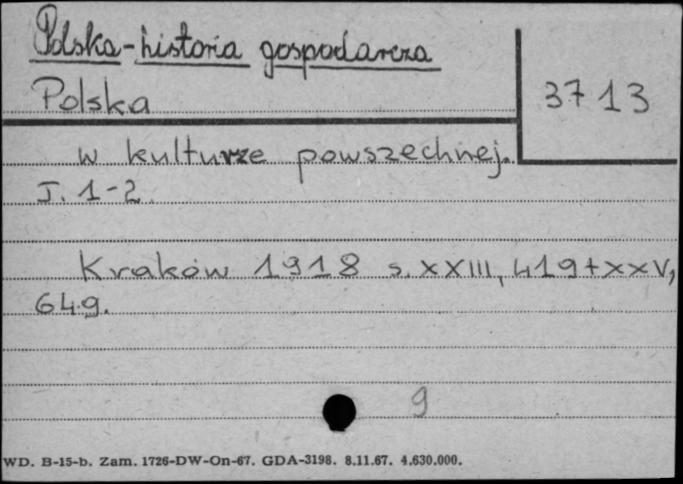 Polska-historia gospodarcza
Polska
3713
w kulturze powszechnej.
T. 1-2.
Kraków 1918 s. XXIII, 419+XXV,
649.
9
WD. B-15-b. Zam. 1726-DW-On-67. GDA-3198. 8.11.67. 4.630.000.